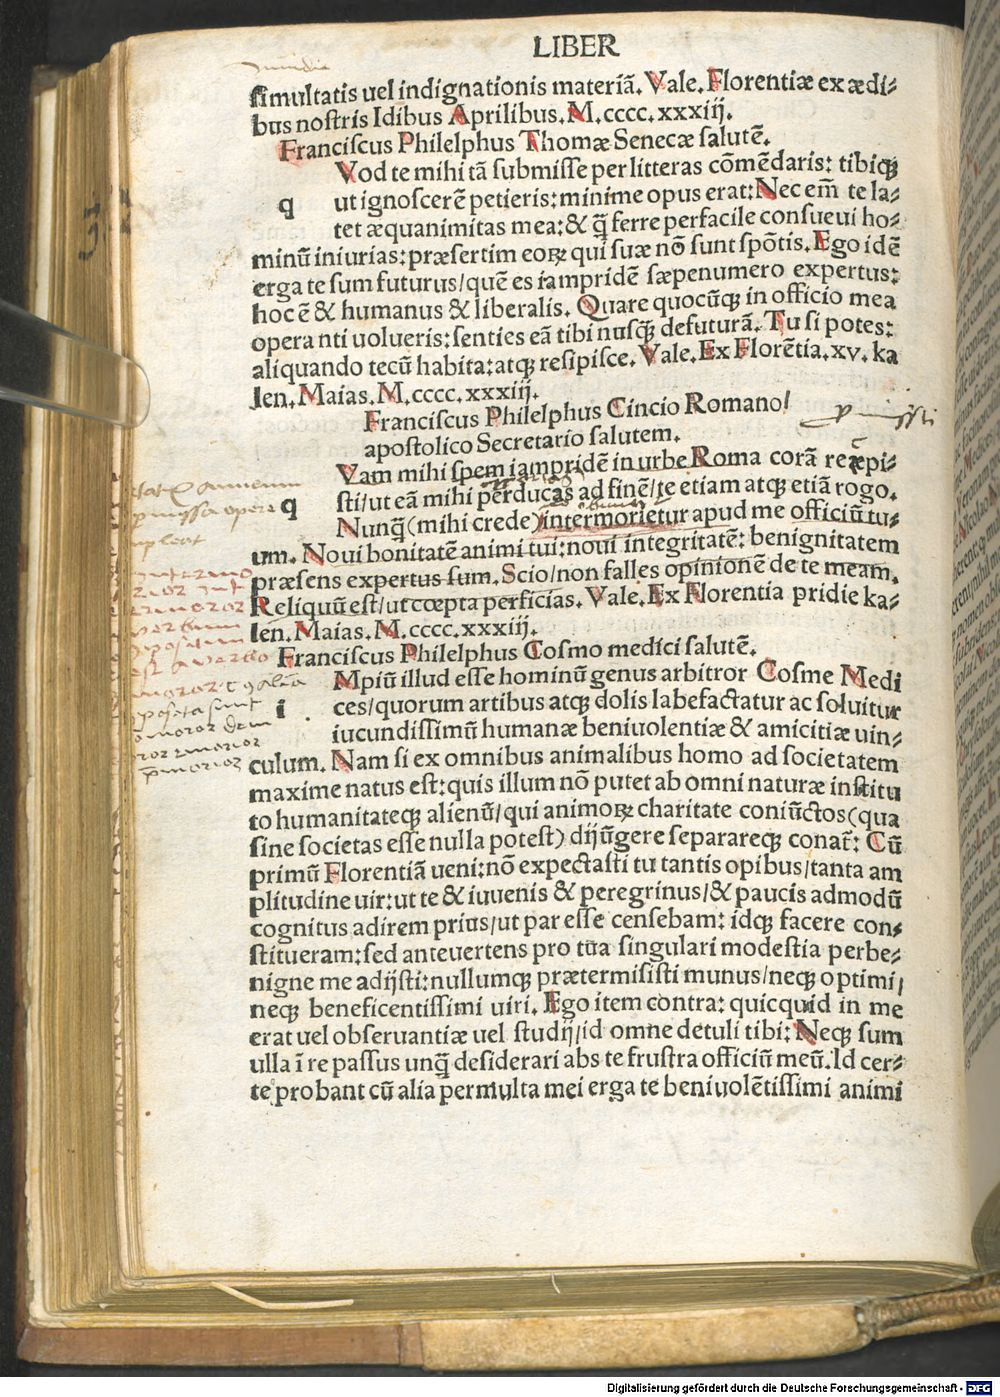 LIBER
simultatis uel indignationis materiā. Vale. Florentiæ ex ædi⸗
bus nostris Idibus Aprilibus. M.cccc.xxxiij.
Franciscus Philelphus Thomæ Senecæ salutē.
Vod te mihi tā submisse per litteras cōmēdaris: tibiqꝫ
q ut ignoscerē petieris: minime opus erat: Nec em̄ te la⸗
tet æquanimitas mea: & q̄ ferre perfacile consueui ho⸗
minū iniurias: præsertim eoꝝ qui suæ nō sunt spōtis. Ego idē
erga te sum futurus/quē es iampridē sæpenumero expertus:
hoc ē & humanus & liberalis. Quare quocūqꝫ in officio mea
opera nti uolueris: senties eā tibi nusq̄ defuturā. Tu si potes:
aliquando tecū habita: atqꝫ resipisce. Vale. Ex Florētia. xv. ka
len. Maias. M.cccc.xxxiij.
Franciscus Philelphus Cincio Romano/
apostolico Secretario salutem.
Vam mihi spem iampridē in urbe Roma corā re cæpi⸗
q sti/ut eā mihi perducas ad finē/te etiam atqꝫ etiā rogo.
Nunq̄ (mihi crede) intermorietur apud me officiū tu⸗
um. Noui bonitatē animi tui: noui integritatē: benignitatem
præsens expertus sum. Scio/non falles opinionē de te meam.
Reliquū est/ut cœpta perficias. Vale. Ex Florentia pridie ka⸗
len. Maias. M.cccc.xxxiij.
Franciscus Philelphus Cosmo medici salutē.
Mpiū illud esse hominū genus arbitror Cosme Medi
i ces/quorum artibus atqꝫ dolis labefactatur ac soluitur
iucundissimū humanæ beniuolentiæ & amicitiæ uin⸗
culum. Nam si ex omnibus animalibus homo ad societatem
maxime natus est: quis illum nō putet ab omni naturæ institu
to humanitateqꝫ alienū/qui animoꝝ charitate coniūctos (qua
sine societas esse nulla potest) dijūgere separareqꝫ conat̄: Cū
primū Florentiā ueni: nō expectasti tu tantis opibus/tanta am
plitudine uir: ut te & iuuenis & peregrinus/& paucis admodū
cognitus adirem prius/ut par esse censebam: idqꝫ facere con⸗
stitueram: sed anteuertens pro tua singulari modestia perbe⸗
nigne me adijsti: nullumqꝫ prætermisisti munus/neqꝫ optimi/
neqꝫ beneficentissimi uiri. Ego item contra: quicquid in me
erat uel obseruantiæ uel studij/id omne detuli tibi: Neqꝫ sum
ulla ī re passus unq̄ desiderari abs te frustra officiū meū. Id cer⸗
te probant cū alia permulta mei erga te beniuolētissimi animi
Digitalisierung gefördert durch die Deutsche Forschungsgemeinschaft - DFG